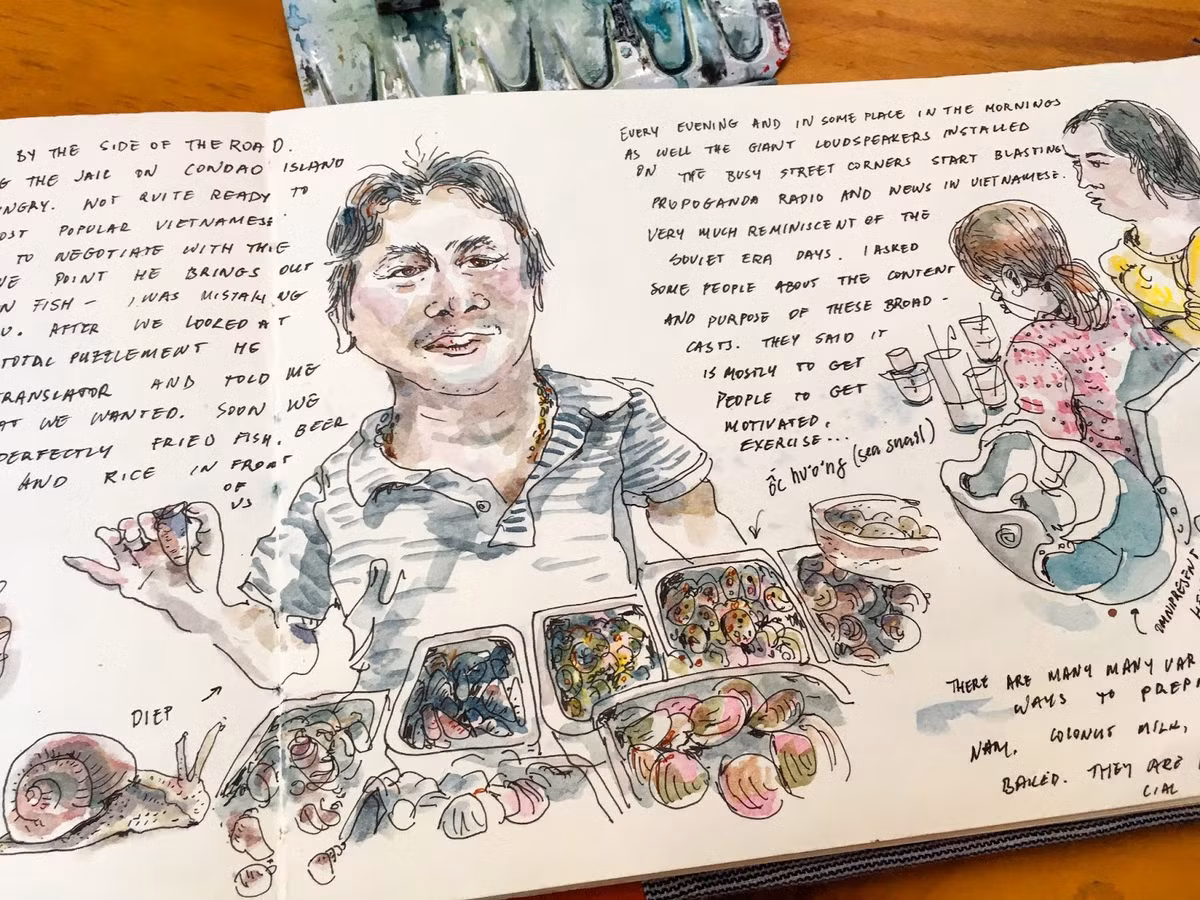 BY THE SIDE OF THE ROAD.
G THE JAIL ON CONDAO ISLAND
NGRY. NOT QUITE READY TO
OST POPULAR VIETNAMESE.
TO NEGOTIATE WITH THE
VE POINT HE BRINGS OUT
N FISH - I WAS MISTAKING
U. AFTER WE LOOKED AT
TOTAL PUZZLEMENT HE
TRANSLATOR AND TOLD ME
AT WE WANTED. SOON WE
PERFECTLY FRIED FISH, BEER
AND RICE IN FRONT
OF
US
DIEP
EVERY EVENING AND IN SOME PLACE IN THE MORNINGS
AS WELL THE GIANT LOUDSPEAKERS INSTALLED
ON THE BUSY STREET CORNERS START BLASTING
PROPOGANDA RADIO AND NEWS IN VIETNAMESE.
VERY MUCH REMINISCENT OF THE
SOVIET ERA DAYS. I ASKED
SOME PEOPLE ABOUT THE CONTENT
AND PURPOSE OF THESE BROAD-
CASTS. THEY SAID IT
IS MOSTLY TO GET
PEOPLE TO GET
MOTIVATED,
EXERCISE...
ốc hương (sea snail)
OMNIPRESENT
THERE ARE MANY MANY VAR
WAYS TO PREPA
NAM. COCONUT MILK,
BAKED. THEY ARE
CIAL